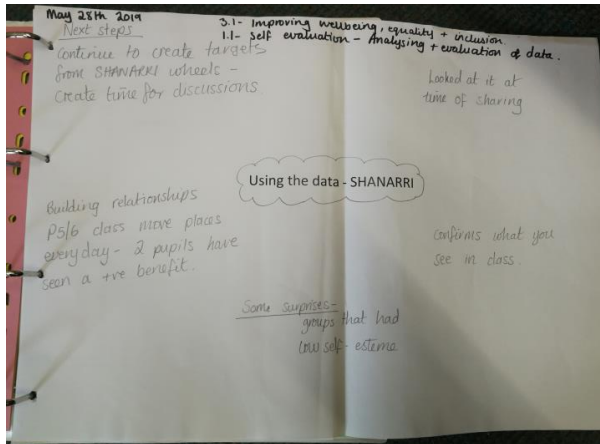 May 28th 2019
3.1- Improving wellbeing, equality + inclusion.
1.1- Self evaluation - Analysing + evaluation of data.
Next steps
Continue to create targets
from SHANARRI wheels -
Create time for discussions
Looked at it at
time of sharing
Using the data - SHANARRI
Building relationships
P5/6 class move places
everyday - 2 pupils have
seen a +ve benefit.
Confirms what you
see in class.
Some surprises-
groups that had
low self-esteme